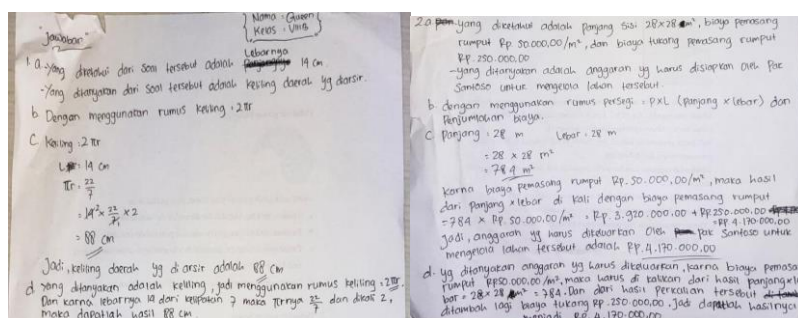 "Jawaban"
Nama : Queen
Kelas : VIIIB
1. a. -Yang diketahui dari soal tersebut adalah Lebarnya 14 cm
-Yang ditanyakan dari soal tersebut adalah keliling daerah yg diarsir.
b. Dengan menggunakan rumus keliling : 2πr
C. Keliling : 2 πr
L : 14 cm
πr : 22/7
= 14² × 22/7 × 2
= 88 cm
Jadi, keliling daerah yg di arsir adalah 88 cm
d. yang ditanyakan adalah keliling, jadi menggunakan rumus keliling : 2πr.
Dan karna lebarnya 14 dari kelipatan 7 maka πrnya 22/7 dan dikali 2,
maka dapatlah hasil 88 cm
2.a. yang diketahui adalah panjang sisi 28×28 m², biaya pemasang
rumput Rp. 50.000,00/m², dan biaya tukang pemasang rumput
Rp. 250.000,00
-yang ditanyakan adalah anggaran yg harus disiapkan oleh Pak
Santoso untuk mengelola lahan tersebut.
b. dengan menggunakan rumus persegi = P×L (panjang × lebar) dan
Penjumlahan biaya.
C. Panjang : 28 m Lebar : 28 m
= 28 × 28 m²
= 784 m²
karna biaya pemasang rumput Rp. 50.000,00/m², maka hasil
dari panjang × lebar di kali dengan biaya pemasang rumput
= 784 × Rp. 50.000,00/m² = Rp. 3.920.000.00 + Rp.250.000,00
= RP. 4.170.000.00
Jadi, anggaran yg harus dikeluarkan oleh pak Santoso untuk
mengelola lahan tersebut adalah Rp. 4.170.000,00
d. yg ditanyakan anggaran yg harus dikeluarkan, karna biaya pemasa
rumput Rp50.000,00/m², maka harus di kalikan dari hasil panjang×l
bar = 28×28 m² = 784. Dan dari hasil perkalian tersebut
ditambah lagi biaya tukang Rp. 250.000,00. Jadi dapatlah hasilnya
menjadi Rp. 4.170.000,00